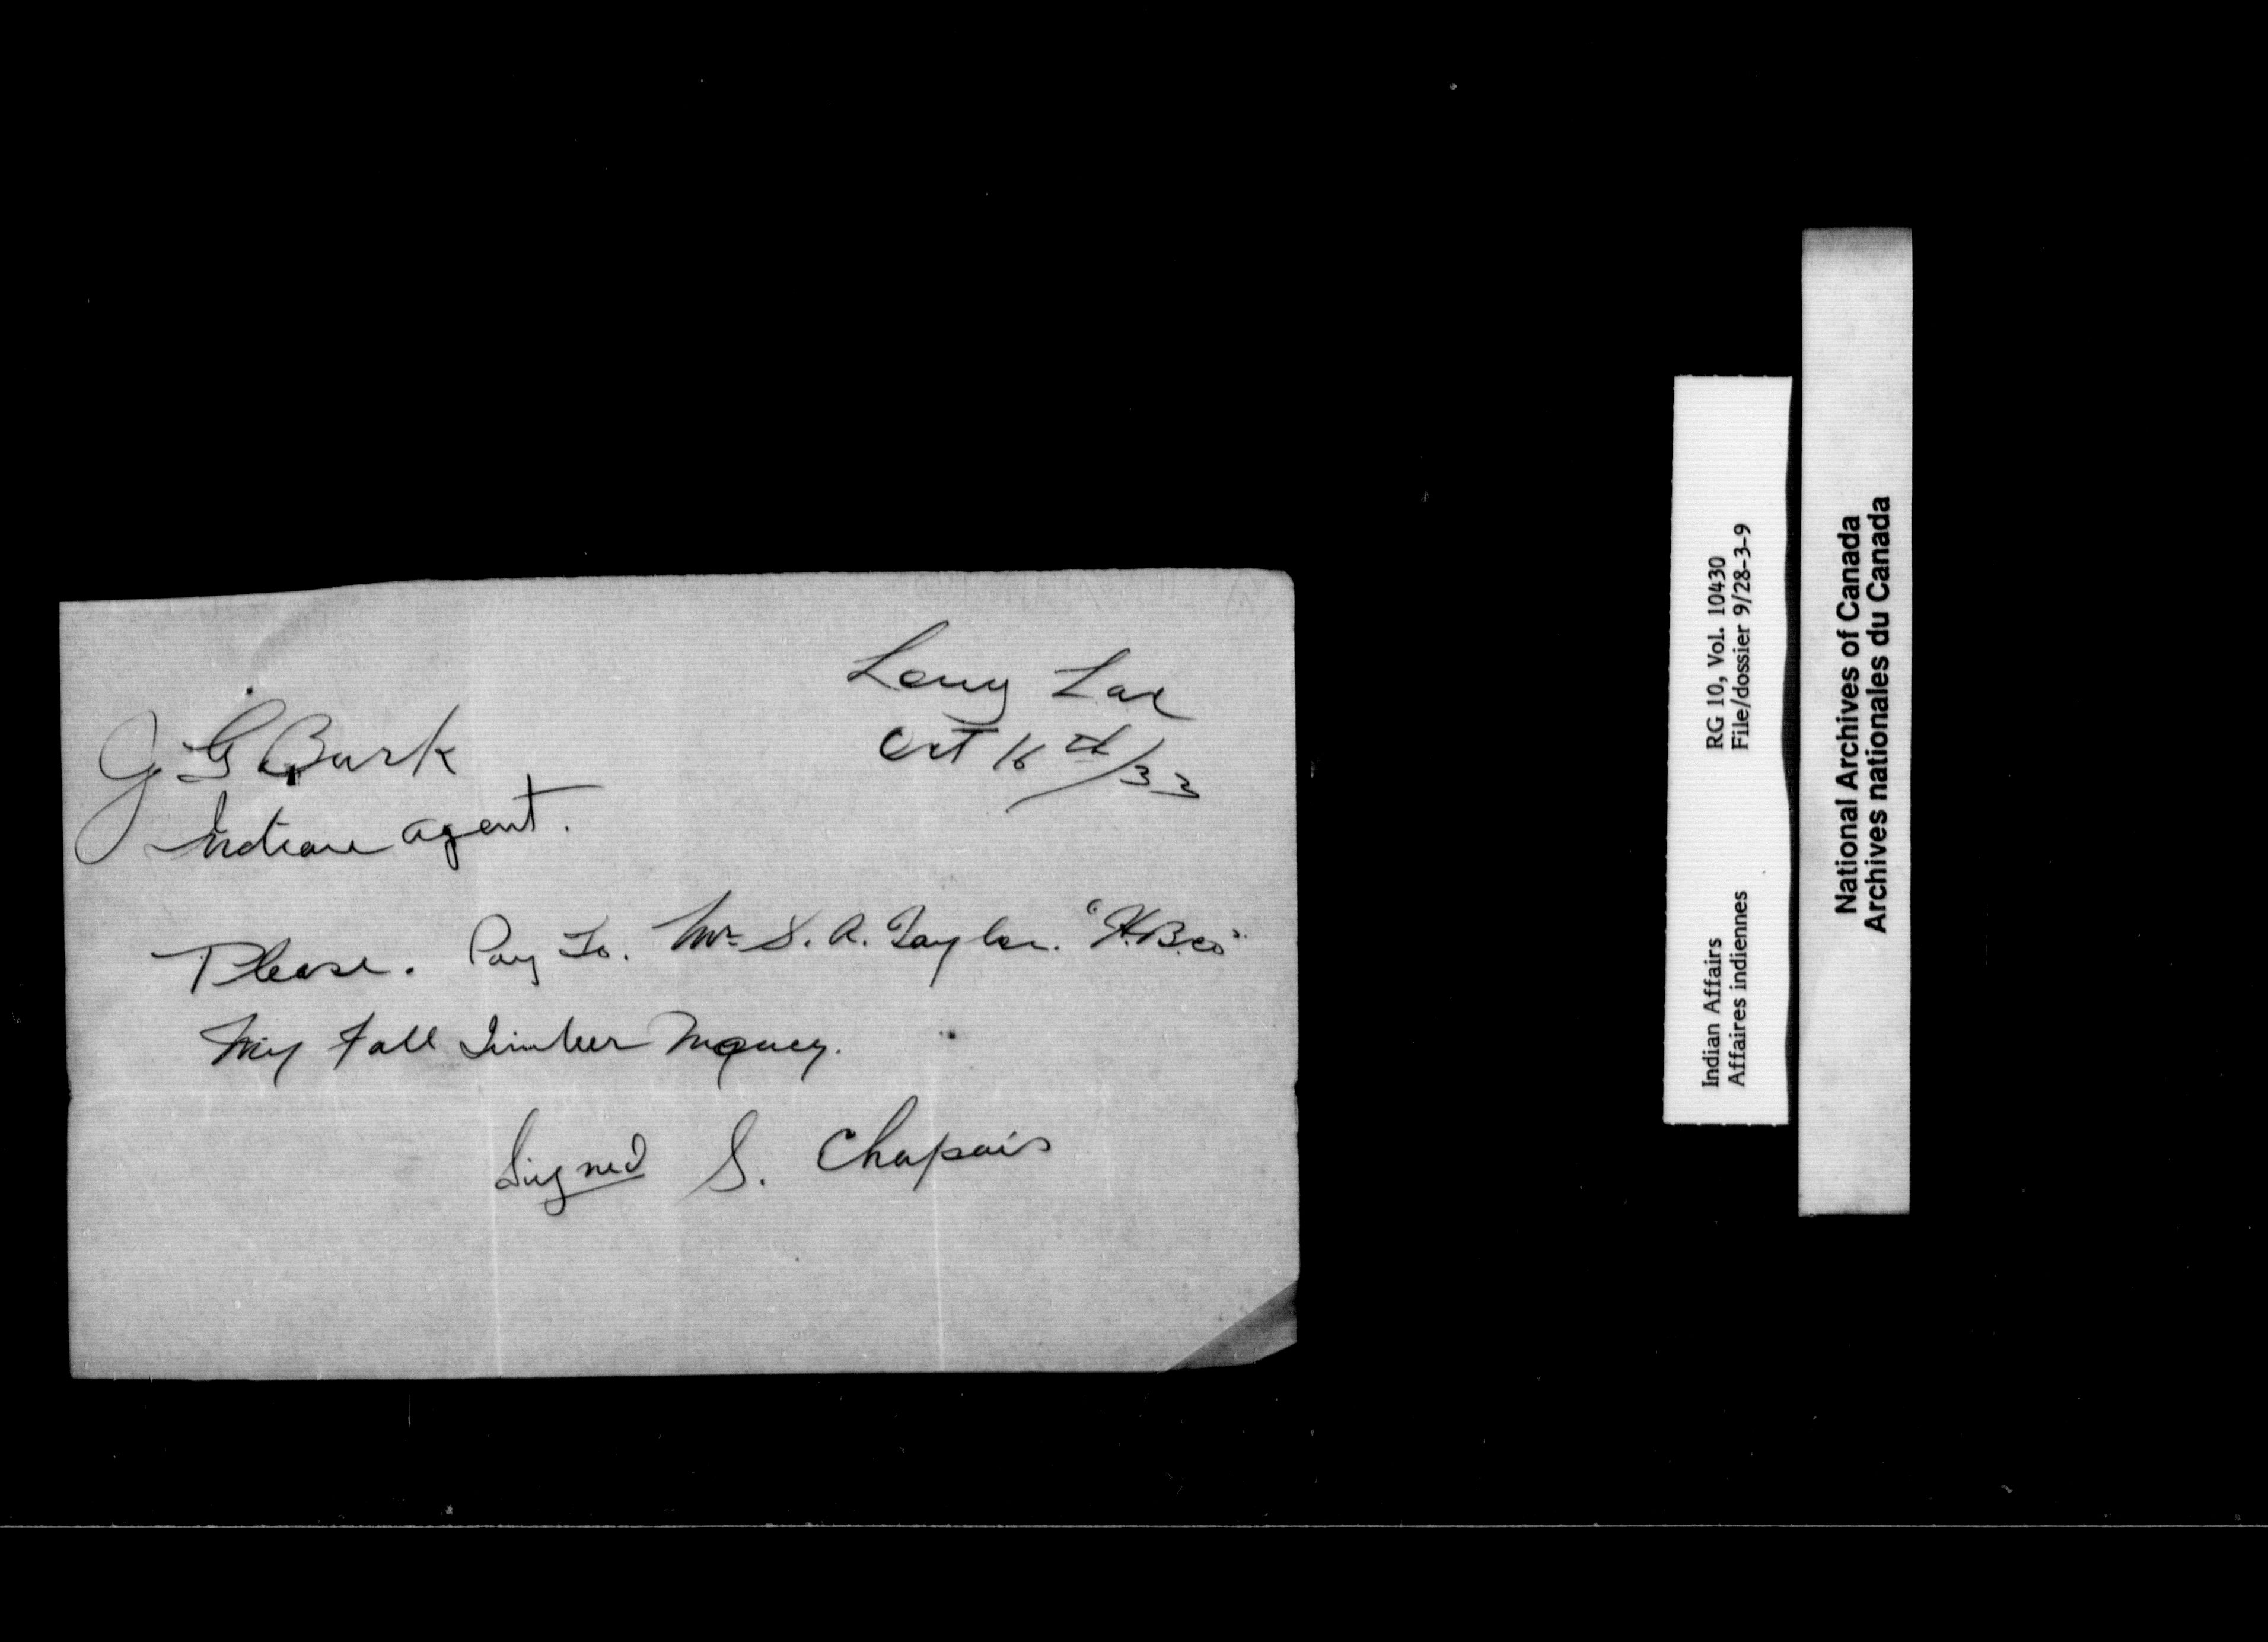 Long Lac
Oct 16th/33
J G Burk
Indian agent.
Please. Pay To. Mr. S. A. Taylor. "H.B.Co".
My Fall Timber Money.
Signed S. Chapais
Indian Affairs RG 10, Vol. 10430
Affaires indiennes File/dossier 9/28-3-9
National Archives of Canada
Archives nationales du Canada